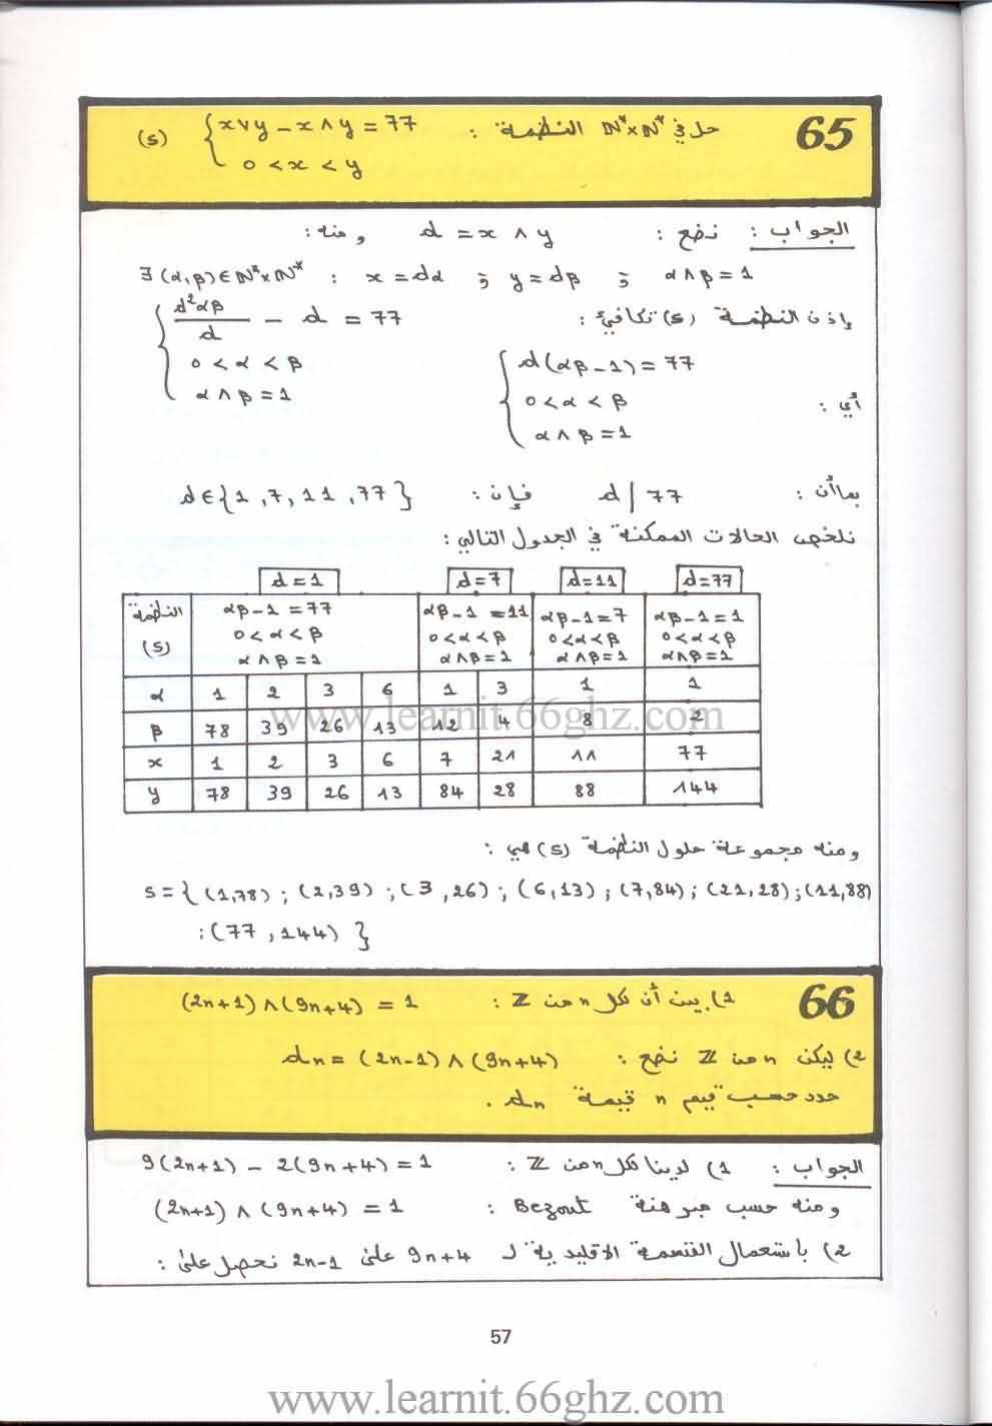 65 حل في ℕ*×ℕ* النظمة : (S) { x∨y - x∧y = 77
0 < x < y
الجواب : نضع : d = x ∧ y ومنه :
∃ (α,β) ∈ ℕ*×ℕ* : x = dα ; y = dβ ; α∧β = 1
إذن النظمة (S) تكافئ : { d²αβ/d - d = 77
0 < α < β
α ∧ β = 1
أي : { d(αβ-1) = 77
0 < α < β
α ∧ β = 1
بما أن : d | 77 فإن : d ∈ {1, 7, 11, 77}
نلخص الحالات الممكنة في الجدول التالي :
d = 1 d = 7 d = 11 d = 77
النظمة (S) αβ-1 = 77 αβ-1 = 11 αβ-1 = 7 αβ-1 = 1
0 < α < β 0 < α < β 0 < α < β 0 < α < β
α ∧ β = 1 α∧β = 1 α∧β = 1 α∧β = 1
α 1 2 3 6 1 3 1 1
β 78 39 26 13 12 4 8 2
x 1 2 3 6 7 21 11 77
y 78 39 26 13 84 28 88 144
www.learnit.66ghz.com
ومنه مجموعة حلول النظمة (S) هي :
S = { (1,78) ; (2,39) ; (3,26) ; (6,13) ; (7,84) ; (21,28) ; (11,88)
; (77,144) }
66 1) بين أن لكل n من ℤ : (2n+1) ∧ (9n+4) = 1
2) ليكن n من ℤ نضع : dn = (2n-1) ∧ (9n+4)
حدد حسب قيم n قيمة dn .
الجواب : 1) لدينا لكل n من ℤ : 9(2n+1) - 2(9n+4) = 1
ومنه حسب مبرهنة Bezout : (2n+1) ∧ (9n+4) = 1
2) باستعمال القسمة الاقليدية ل 9n+4 على 2n-1 نحصل على :
57
www.learnit.66ghz.com